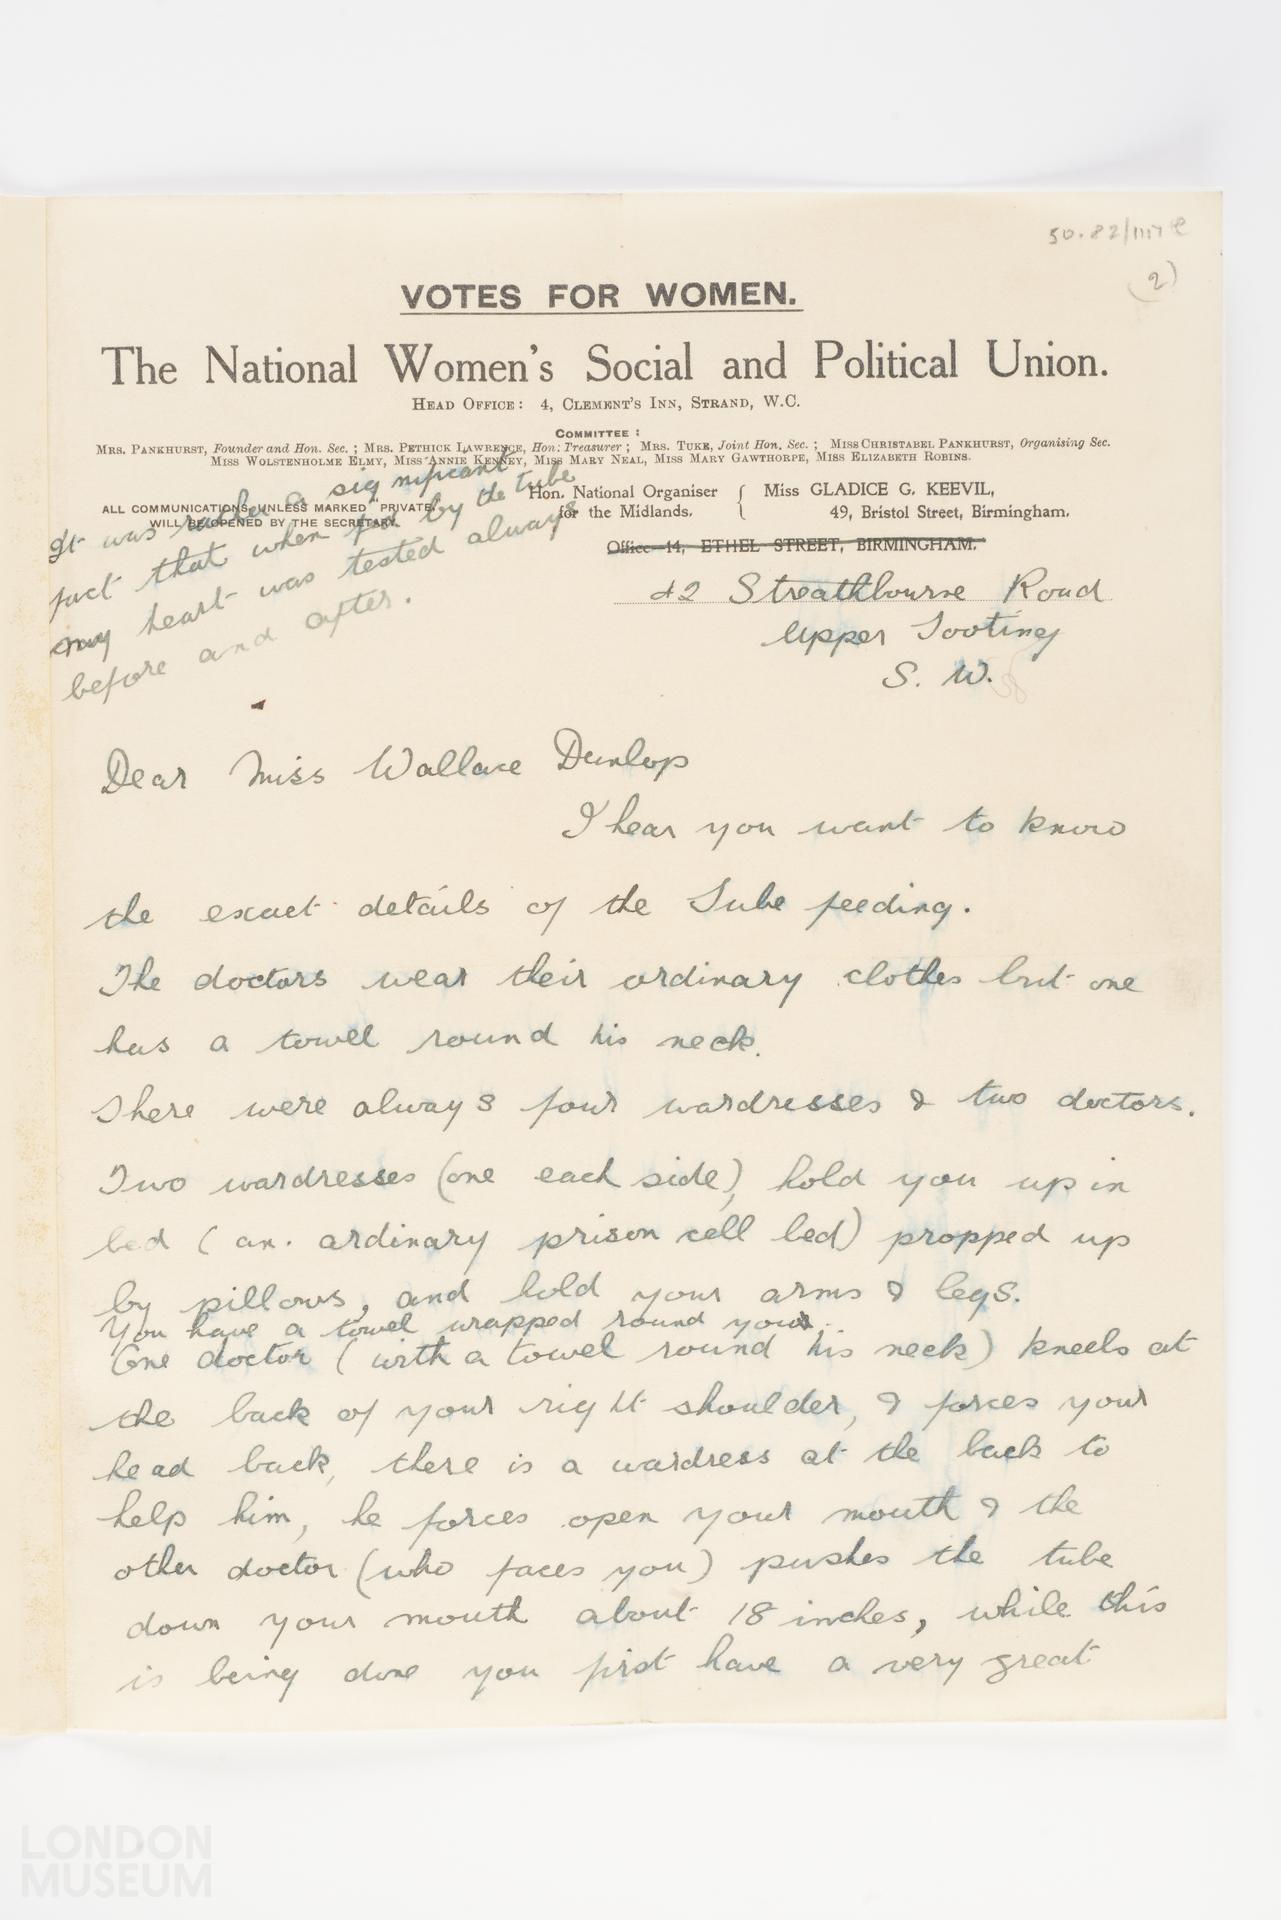 50.82/1117
(2)
VOTES FOR WOMEN.
The National Women's Social and Political Union.
HEAD OFFICE: 4, CLEMENT'S INN, STRAND, W.C.
COMMITTEE:
MRS. PANKHURST, Founder and Hon. Sec.; MRS. PETHICK LAWRENCE, Hon. Treasurer; MRS. TUKE, Joint Hon. Sec.; MISS CHRISTABEL PANKHURST, Organising Sec.
MISS WOLSTENHOLME ELMY, MISS ANNIE KENNEY, MISS MARY NEAL, MISS MARY GAWTHORPE, MISS ELIZABETH ROBINS.
ALL COMMUNICATIONS, UNLESS MARKED "PRIVATE,"
WILL BE OPENED BY THE SECRETARY.
Hon. National Organiser for the Midlands.
Miss GLADICE G. KEEVIL,
49, Bristol Street, Birmingham.
Office—14, ETHEL STREET, BIRMINGHAM.
It was rather a significant
fact that when fed by the tube
my heart was tested always
before and after.
42 Streathbourne Road
Upper Tooting
S. W.
Dear Miss Wallace Dunlop
I hear you want to know
the exact details of the Tube feeding.
The doctors wear their ordinary clothes but one
has a towel round his neck.
There were always four wardresses & two doctors.
Two wardresses (one each side), hold you up in
bed (an ordinary prison cell bed) propped up
by pillows, and hold your arms & legs.
You have a towel wrapped round you.
One doctor (with a towel round his neck) kneels at
the back of your right shoulder, & forces your
head back, there is a wardress at the back to
help him, he forces open your mouth & the
other doctor (who faces you) pushes the tube
down your mouth about 18 inches, while this
is being done you first have a very great
LONDON
MUSEUM